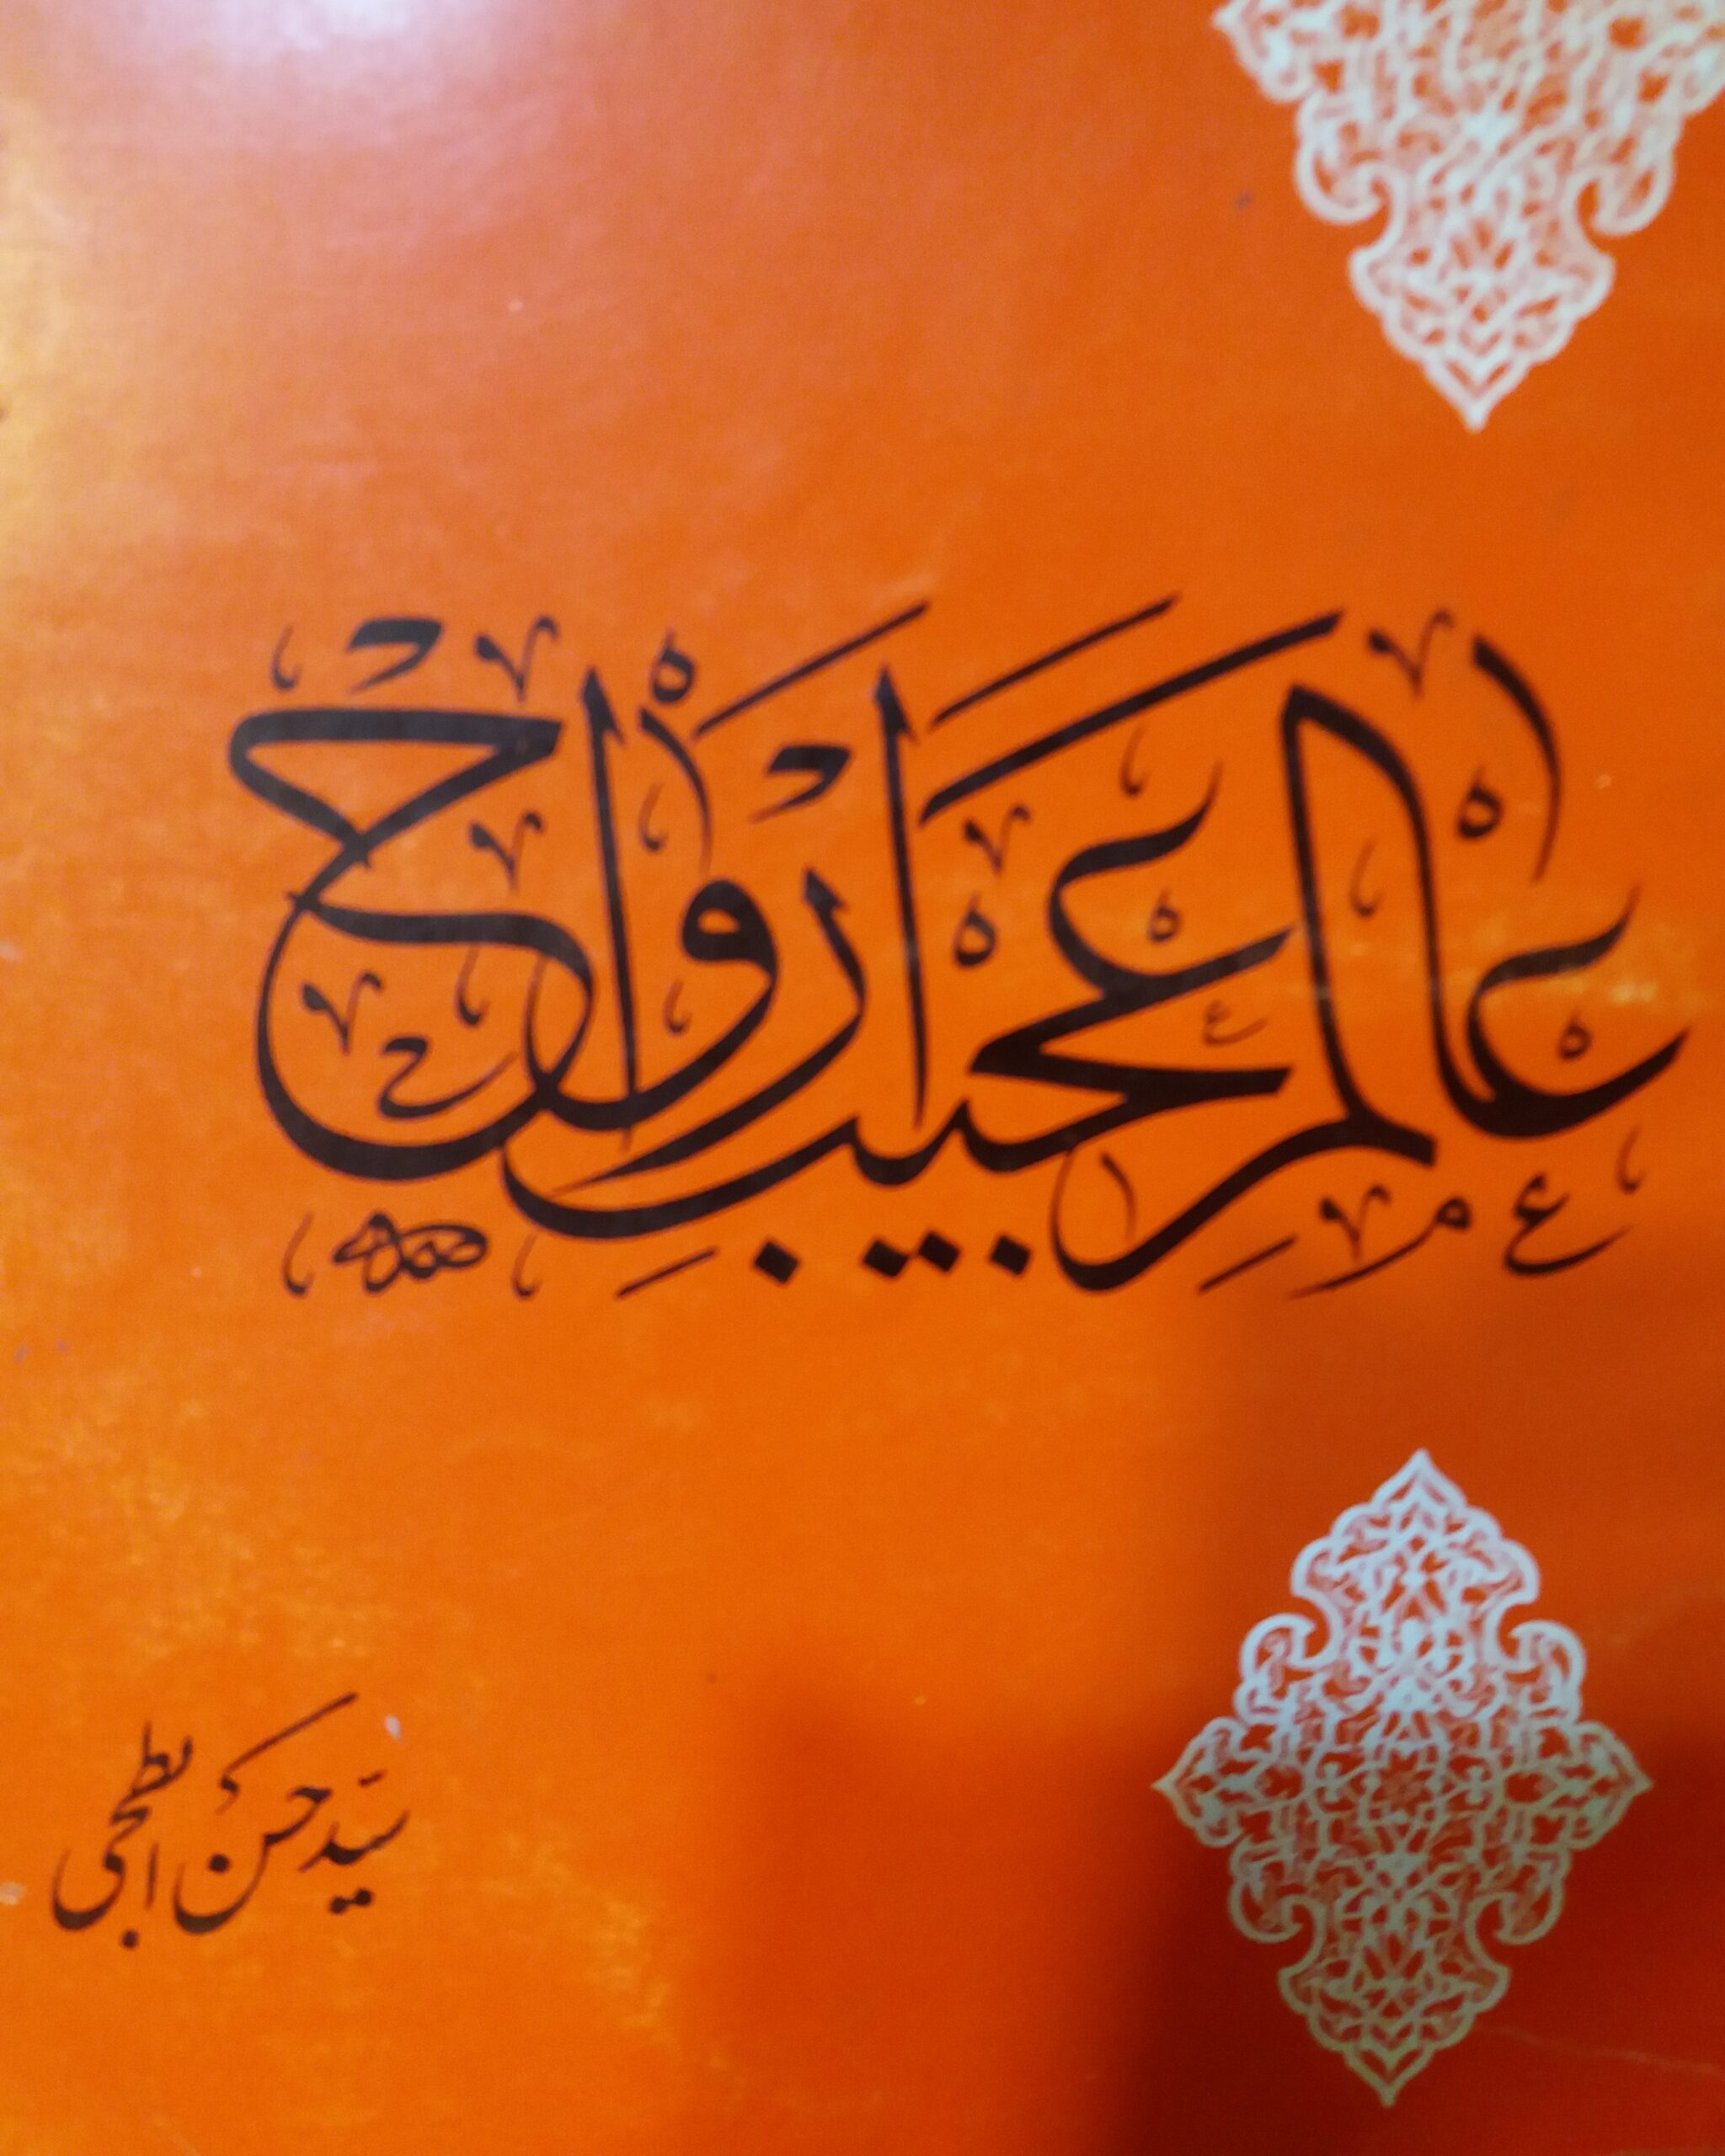 عالم عجیب ارواح
سیّد حسن ابطحی